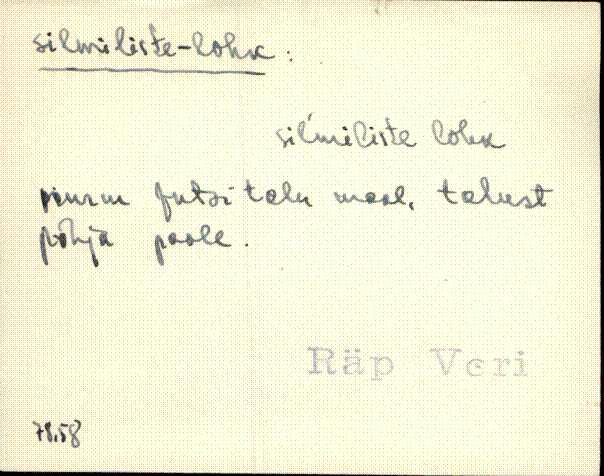 silmiliste-lohk :
sil'miliste lohk
talu maal, talust
põhja poole.
Räp Veri
78.58